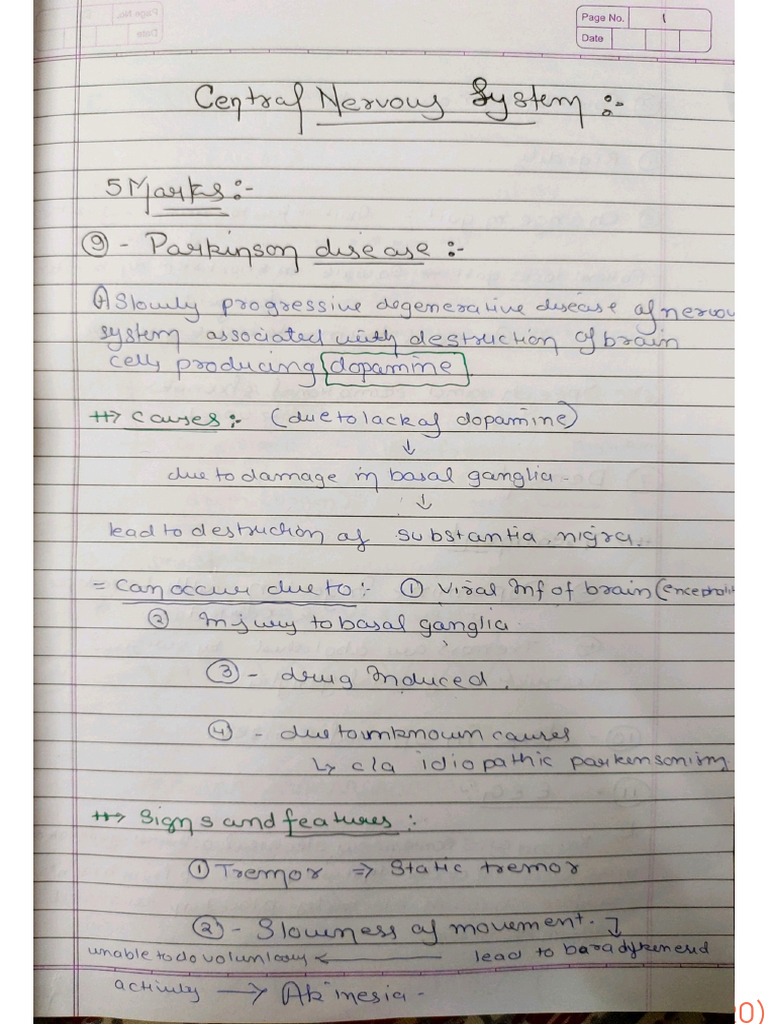 Page No. 1
Date
Central Nervous System :-
5 Marks :-
⑨ - Parkinson disease :-
A slowly progressive degenerative disease of nervou
system associated with destruction of brain
cells producing dopamine
Causes :- (due to lack of dopamine)
↓
due to damage in basal ganglia -
↓
lead to destruction of substantia nigra.
= Can occur due to :- ① Viral Inf of brain (encephalit
② Injury to basal ganglia
③ - drug Induced.
④ - due to unknown causes
↳ c/a idiopathic parkensonism
Signs and features :
① Tremor ⇒ Static tremor
② - Slowness of movement.
unable to do voluntary ← lead to
activity → Akinesia -
0)